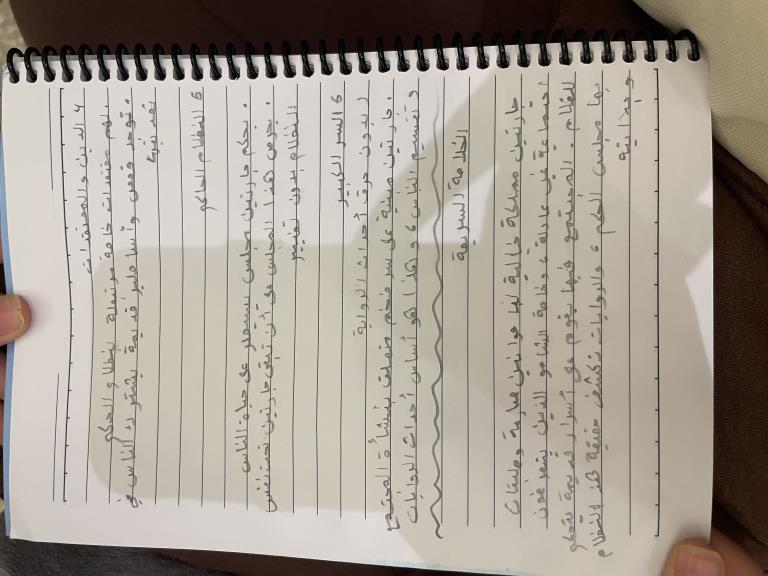 ٤ الدين والمعتقدات
. لهم معتقدات خاصة مرتبطة بنظام الحكم
. توجد قصص وأساطير قديمة يشترك الناس في
5 النظام الحاكم
. يحكم جارتين مجلس يسيطر على حياة الناس
. يحرص هذا المجلس على أن تبقى جارتين تحت نفس
النظام بدون تغيير
6 السر الكبير
( بدون حرق أحداث الرواية
. جارتين مبنية على سر ضخم متعلق بنشأة المجتمع
وتقسيم الناس، وهذا هو أساس أحداث الروايات
الخلاصة السريعة
جارتين مملكة خيالية لها قوانين صارمة وطبقات
اجتماعية غير عادلة، وخاصة الشامو الذين يتعرضون
للظلم. المجتمع فيها يقوم على أسرار قديمة يتحكم
بها مجلس الحكم، والروايات تكشف حقيقة هذا النظام
وبدايته